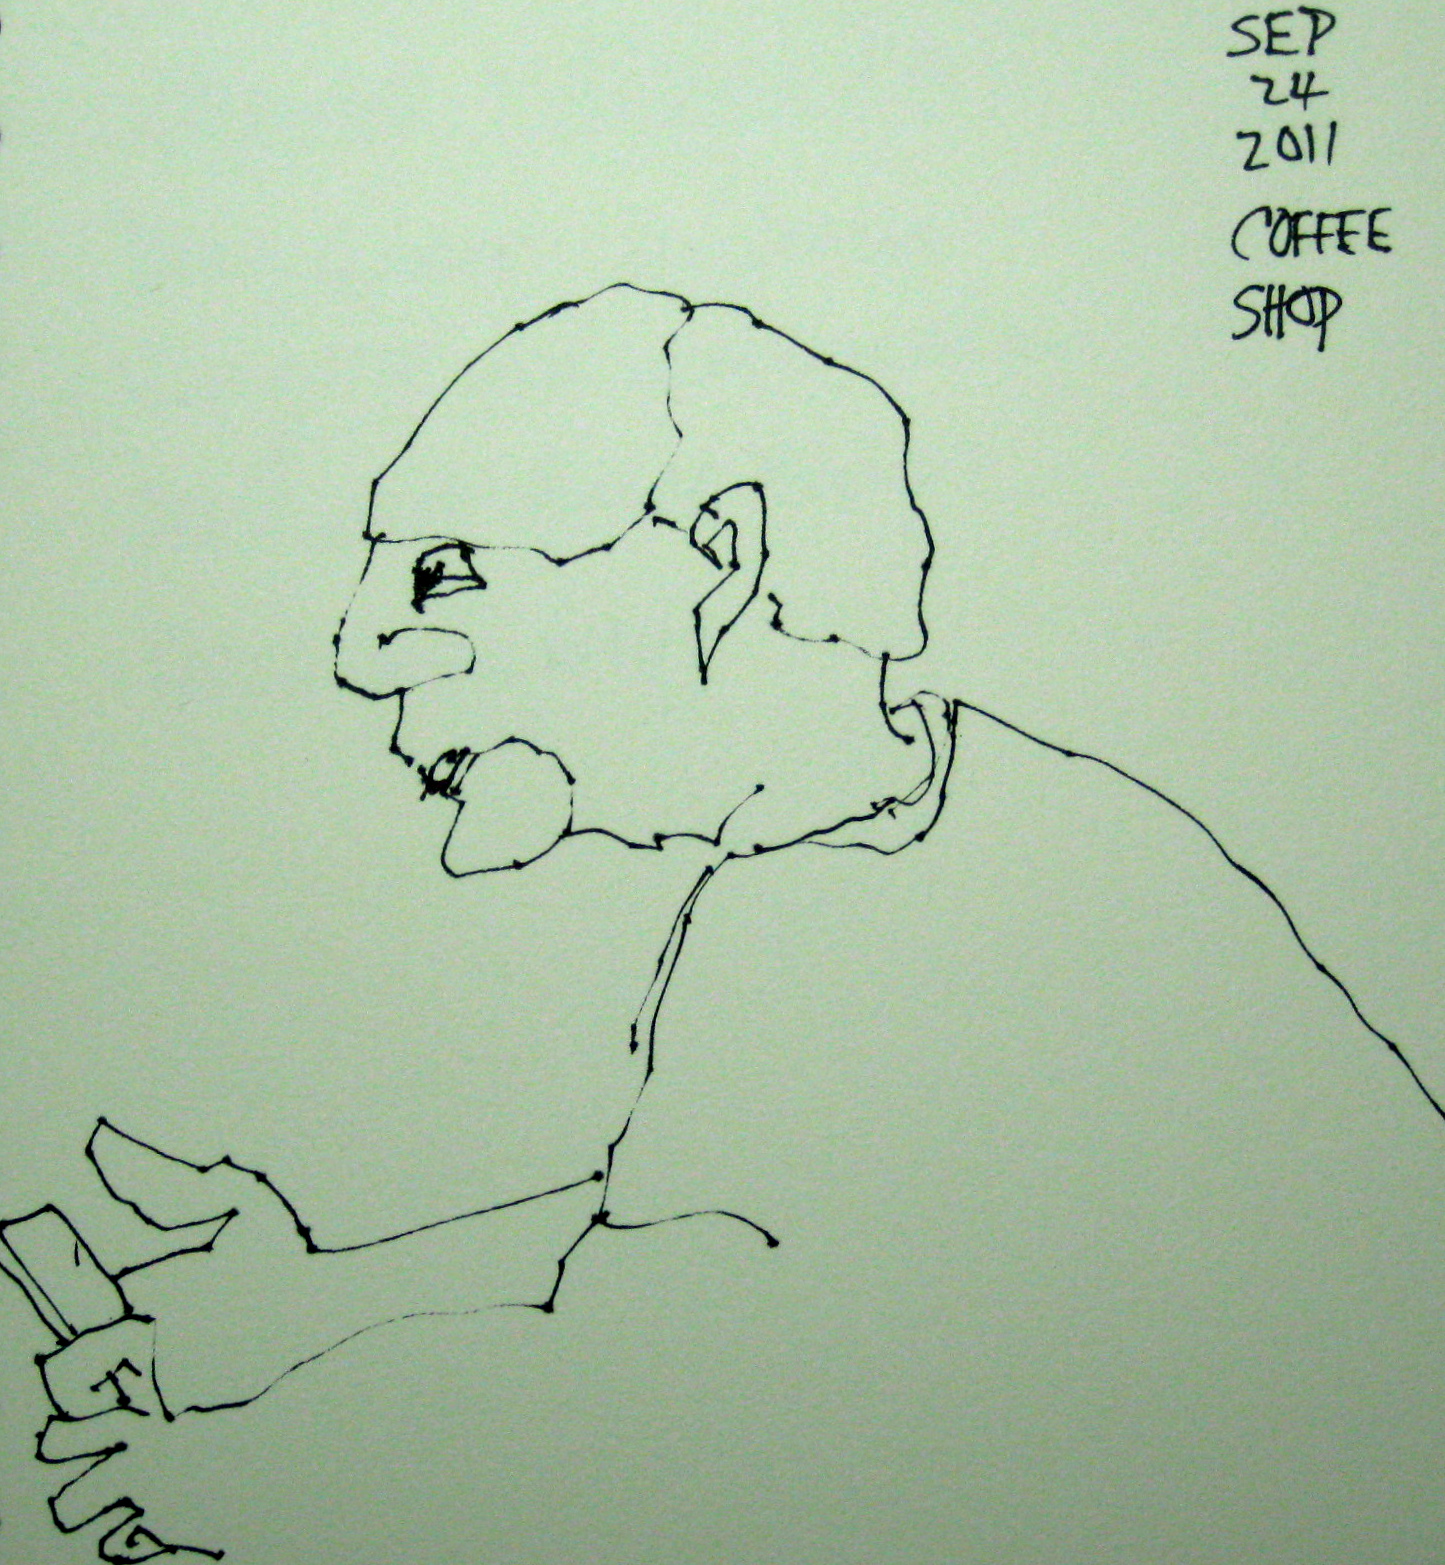 SEP
24
2011
COFFEE
SHOP